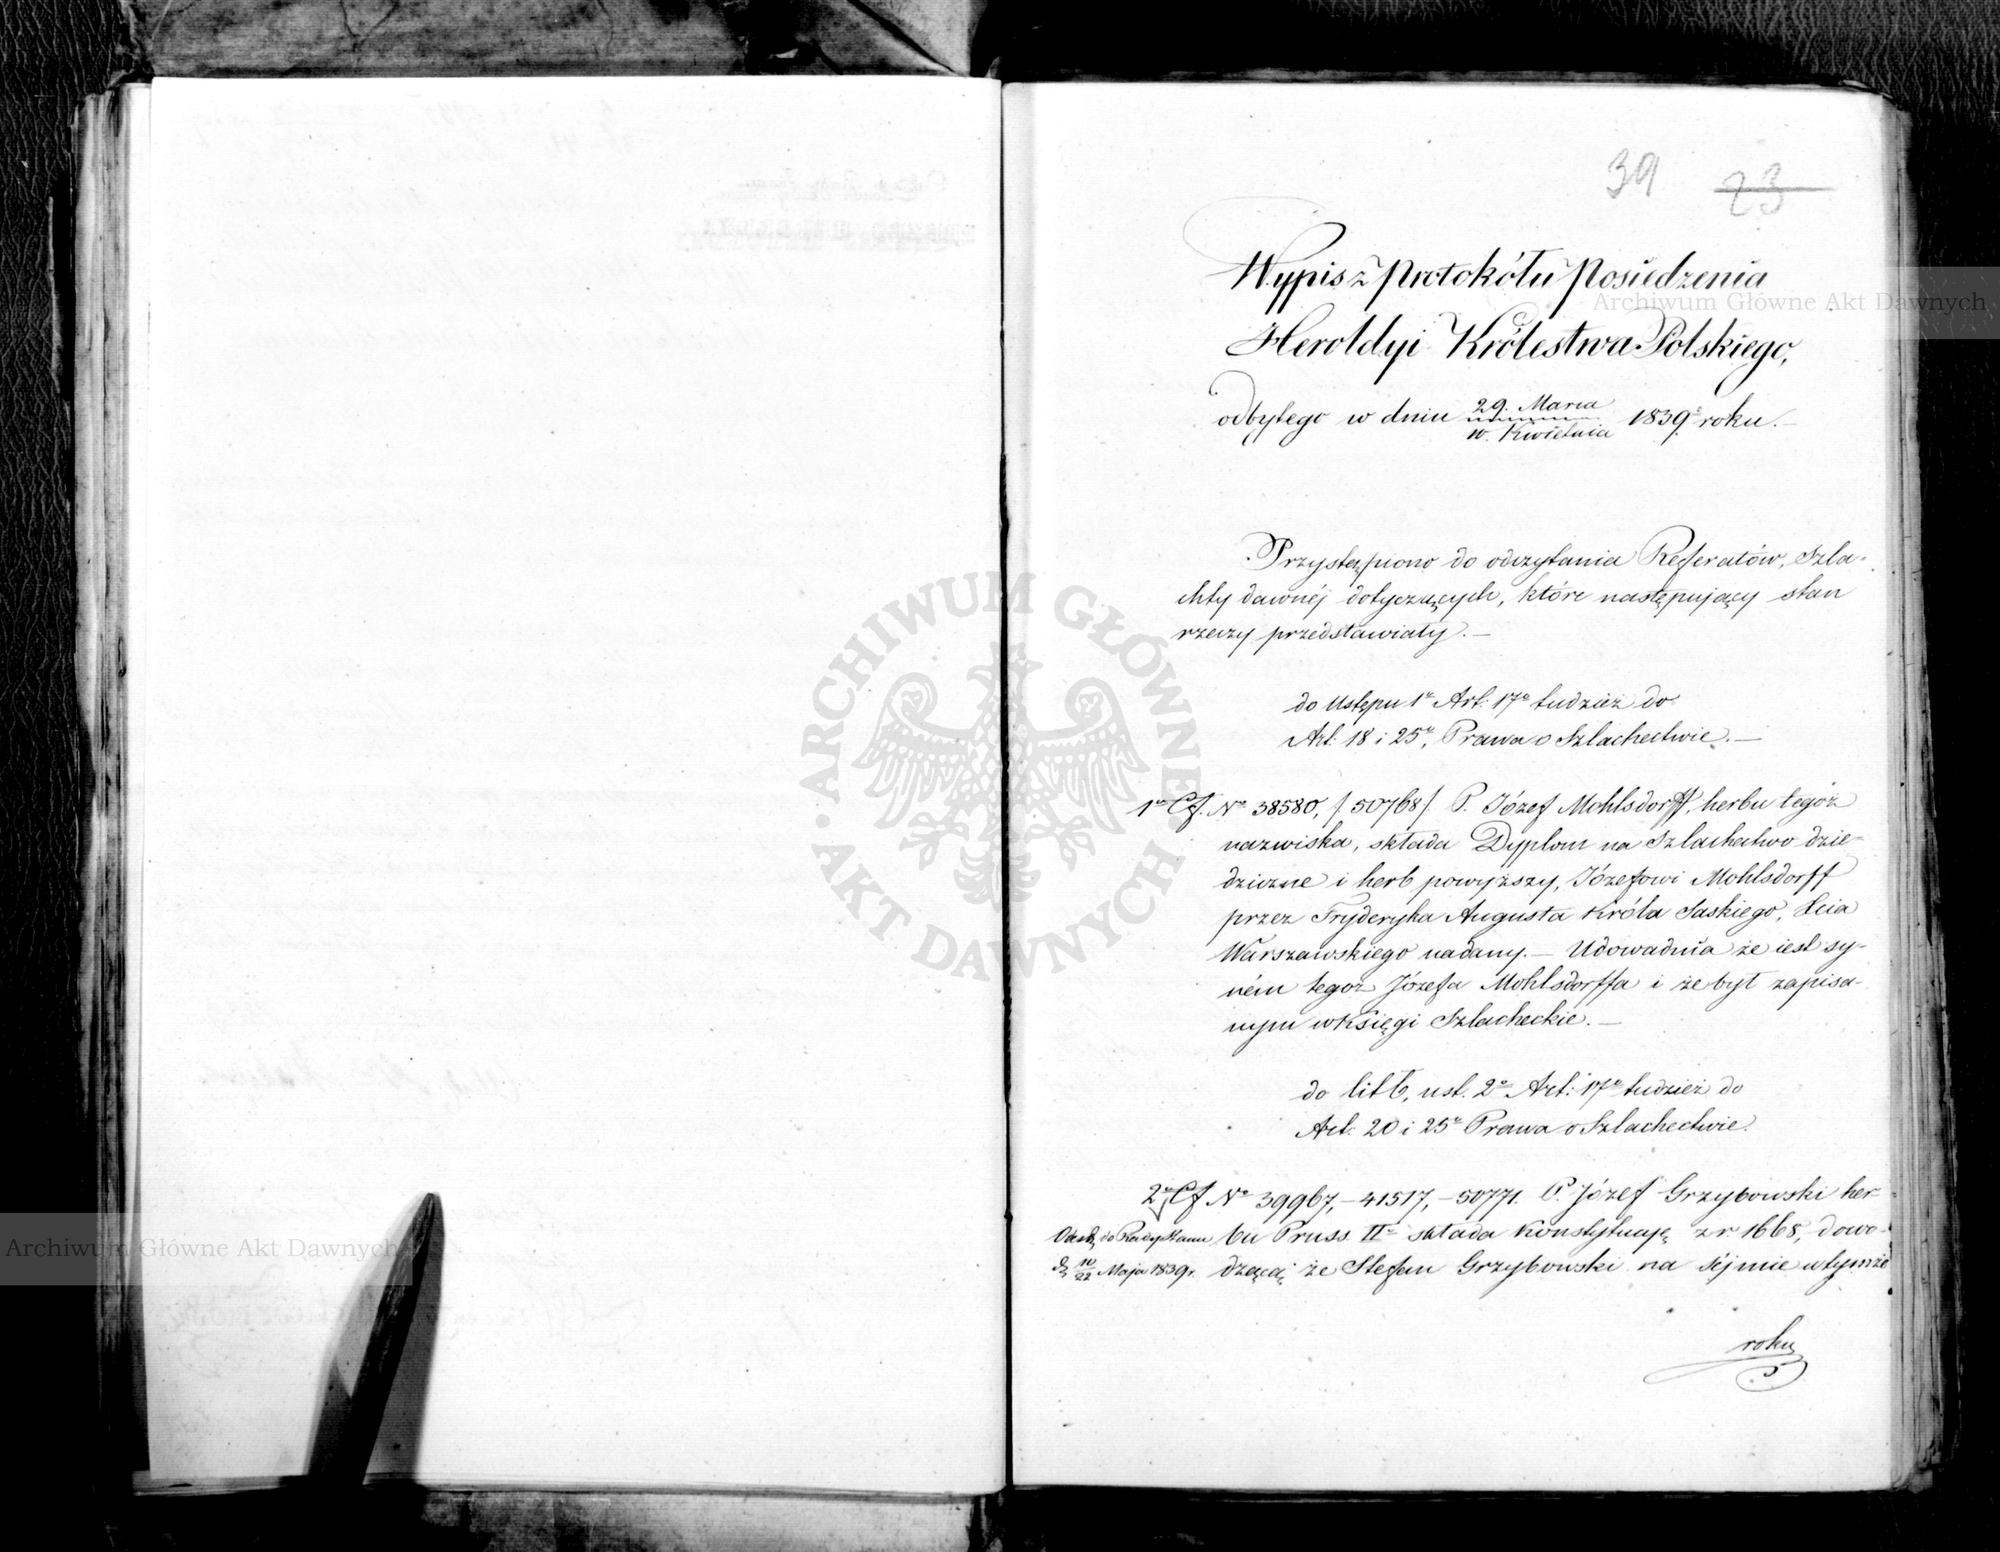 39 23
Wypis z Protokółu Posiedzenia
Heroldyi Królestwa Polskiego,
odbytego w dniu 29. Marca / 10. Kwietnia 1839 roku.—
Przystąpiono do odczytania Referatów, Szla-
chty dawnéj dotyczących, które następujący stan
rzeczy przedstawiały.—
do Ustępu 1o Art: 17o tudzież do
Art: 18 i 25o, Prawa o Szlachectwie.—
1o Cf. No 38580, /50768/. P. Józef Mohlsdorff, herbu tegóż
nazwiska, składa Dyplom na Szlachectwo dzie-
dziczne i herb powyższy, Józefowi Mohlsdorff
przez Fryderyka Augusta Króla Saskiego, Xcia
Warszawskiego nadany.— Udowadnia że iest sy-
ném tegoż Józefa Mohlsdorffa i że był zapisa-
nym w Księgi Szlacheckie.—
do litt b, ust. 2o Art: 17o tudzież do
Art: 20 i 25o Prawa o Szlachectwie.
2o Cf No 39967,—41517,—50771. P. Józef Grzybowski her-
bu Pruss IIo składa Konstytucyę z r. 1668, dowo-
do Rady Stanu
10/22 Maja 1839 r.
dzącą że Stefan Grzybowski na Séjmie w tymże
roku
Archiwum Główne Akt Dawnych
Archiwum Główne Akt Dawnych
ARCHIWUM GŁÓWNE
AKT DAWNYCH